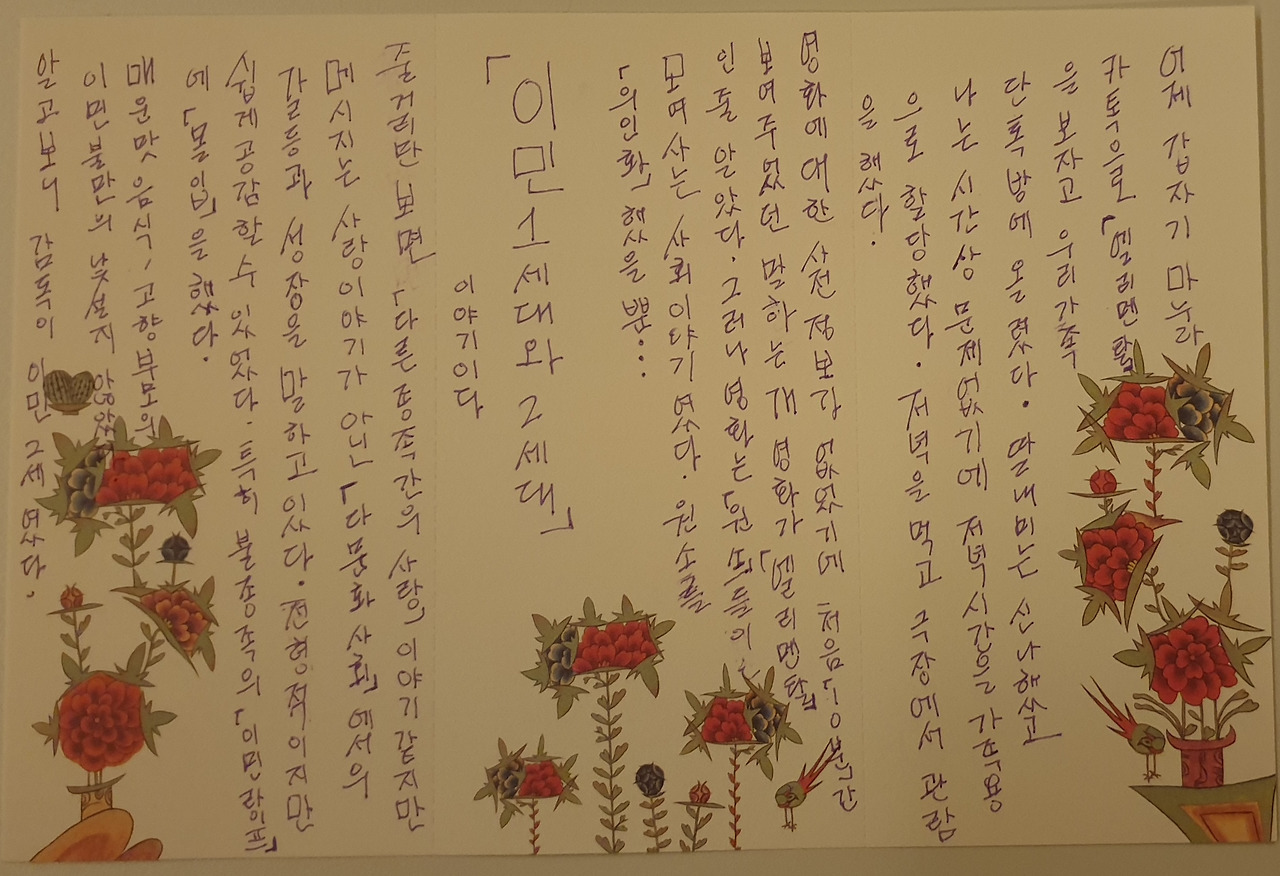 어제 갑자기 마누라
카톡으로 「엘리멘탈」
을 보자고 우리가족
단톡방에 올렸다. 딸내미는 신나하싸고
나는 시간상 문제없기에 저녁시간을 가족용
으로 할당했다. 저녁을 먹고 극장에서 관람
을 했다.
영화에 대한 사전 정보가 없었기에 처음 「10분」간
보여주었던 말하는 개 영화가 「엘리멘탈」
인 줄 알았다. 그러나 영화는 「원소」들이
모여사는 사회이야기 였다. 원소를
「의인화」 했을 뿐...
「이민 1세대와 2세대」
이야기이다
줄거리만 보면 「다른 종족간의 사랑」 이야기 같지만
메시지는 사랑이야기가 아닌 「다문화 사회」에서의
갈등과 성장을 말하고 있다. 전형적이지만
쉽게 공감할 수 있었다. 특히 불종족의 「이민라이프」
에 「몰입」을 했다.
매운맛 음식, 고향부모의
이민불만의 낯설지 않았다
알고보니 감독이 이민 2세 였다.